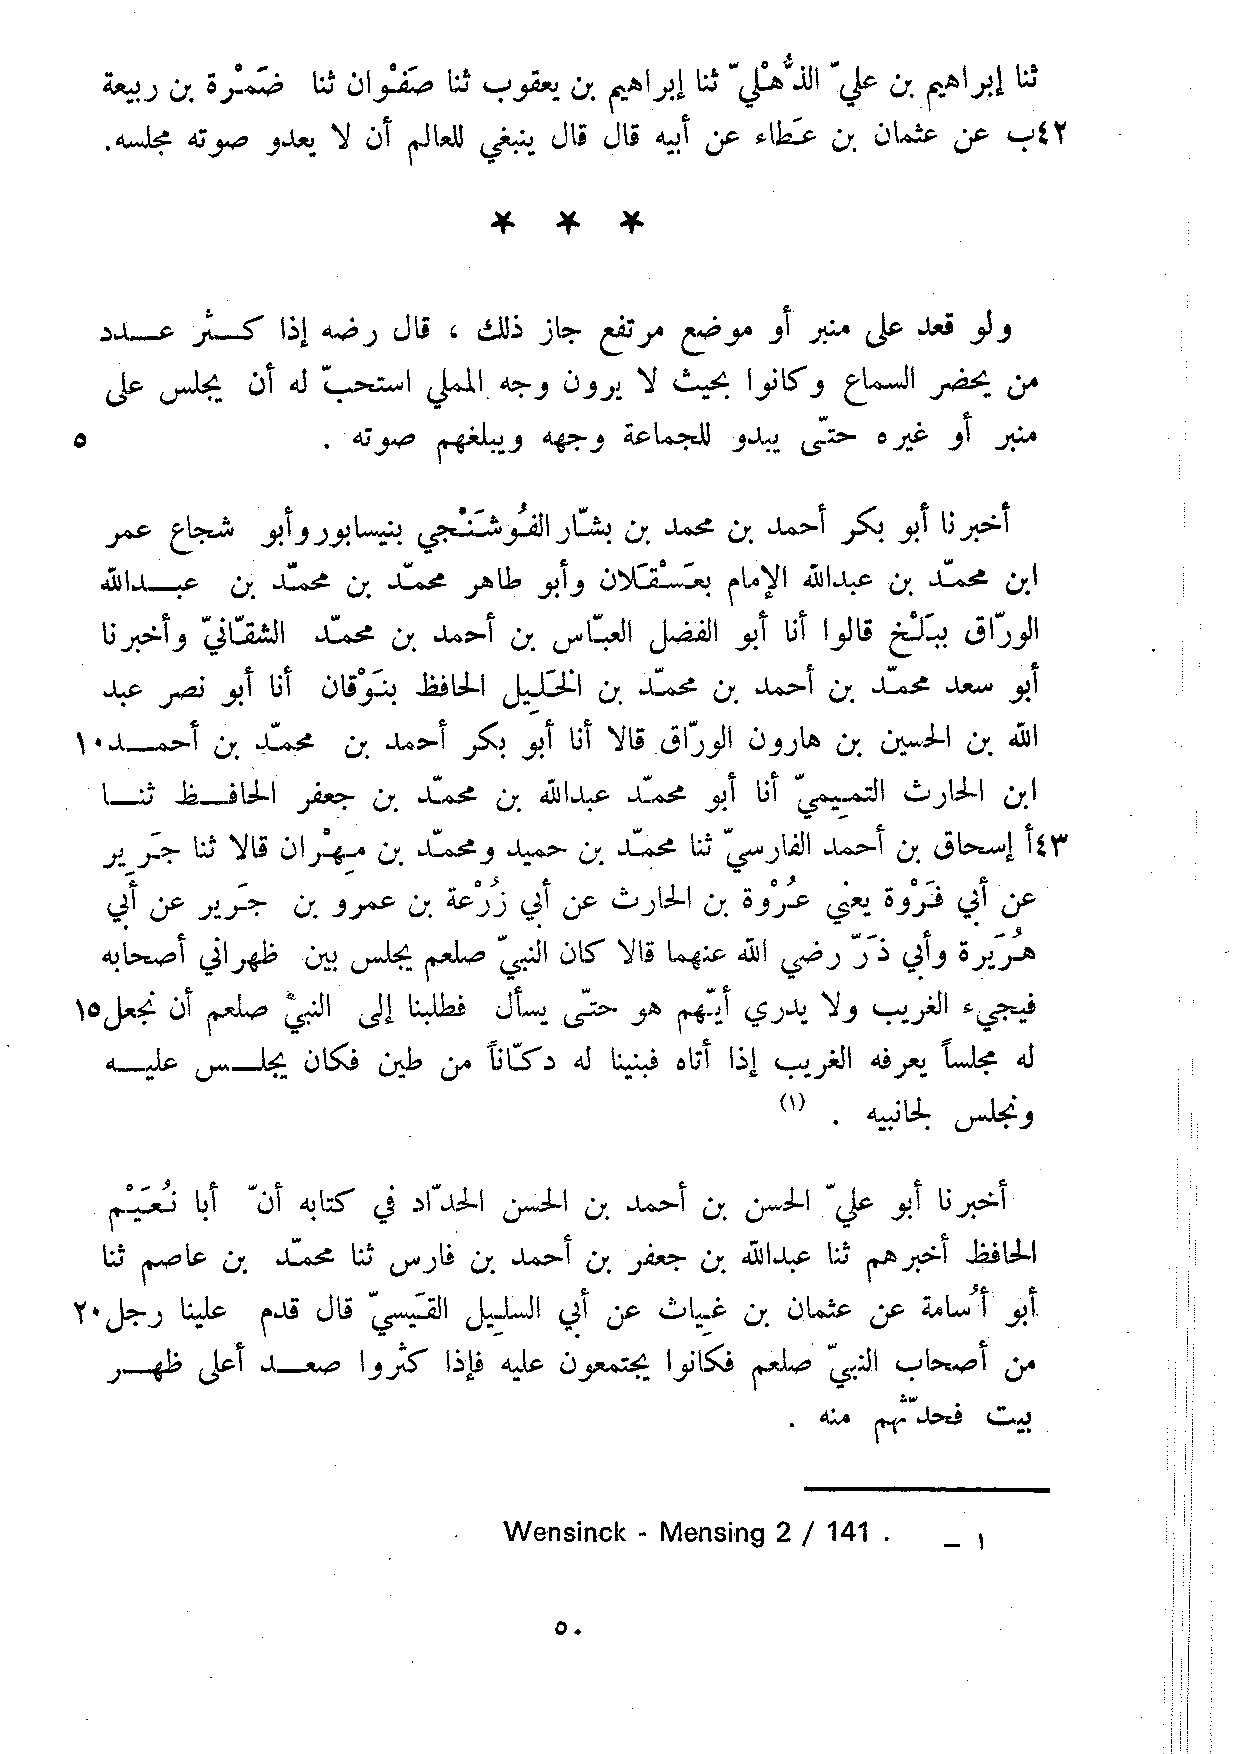 ثنا إبراهيم بن عليّ الذُّهْليّ ثنا إبراهيم بن يعقوب ثنا صَفْوان ثنا ضَمْرة بن ربيعة
٤٢ب عن عثمان بن عَطاء عن أبيه قال قال ينبغي للعالم أن لا يعدو صوته مجلسه.
* * *
ولو قعد على منبر أو موضع مرتفع جاز ذلك ، قال رضه إذا كـــثُر عـــدد
من يحضر السماع وكانوا بحيث لا يرون وجه المملي استحبّ له أن يجلس على
منبر أو غيره حتّى يبدو للجماعة وجهه ويبلغهم صوته . ٥
أخبرنا أبو بكر أحمد بن محمد بن بشّار الفُوشَنْجي بنيسابور وأبو شجاع عمر
ابن محمّد بن عبدالله الإمام بعَسْقَلان وأبو طاهر محمّد بن محمّد بن عبـــدالله
الورّاق ببَلْخ قالوا أنا أبو الفضل العبّاس بن أحمد بن محمّد الشقّانيّ وأخبرنا
أبو سعد محمّد بن أحمد بن محمّد بن الخَليل الحافظ بنَوْقان أنا أبو نصر عبد
الله بن الحسين بن هارون الورّاق قالا أنا أبو بكر أحمد بن محمّد بن أحمـــد ١٠
ابن الحارث التميميّ أنا أبو محمّد عبدالله بن محمّد بن جعفر الحافـــظ ثنـــا
٤٣أ إسحاق بن أحمد الفارسيّ ثنا محمّد بن حميد ومحمّد بن مِهْران قالا ثنا جَرير
عن أبي فَرْوة يعني عُرْوة بن الحارث عن أبي زُرْعة بن عمرو بن جَرير عن أبي
هُرَيرة وأبي ذَرّ رضي الله عنهما قالا كان النبيّ صلعم يجلس بين ظهراني أصحابه
فيجيء الغريب ولا يدري أيّهم هو حتّى يسأل فطلبنا إلى النبيّ صلعم أن نجعل ١٥
له مجلساً يعرفه الغريب إذا أتاه فبنينا له دكّاناً من طين فكان يجلـــس عليـــه
ونجلس بجانبيه . (١)
أخبرنا أبو عليّ الحسن بن أحمد بن الحسن الحدّاد في كتابه أنّ أبا نُعَيْم
الحافظ أخبرهم ثنا عبدالله بن جعفر بن أحمد بن فارس ثنا محمّد بن عاصم ثنا
أبو أُسامة عن عثمان بن غِياث عن أبي السليل القَيسيّ قال قدم علينا رجل ٢٠
من أصحاب النبيّ صلعم فكانوا يجتمعون عليه فإذا كثروا صعـــد أعلى ظهـــر
بيت فحدّثهم منه .
١ _ Wensinck - Mensing 2 / 141 .
٥٠